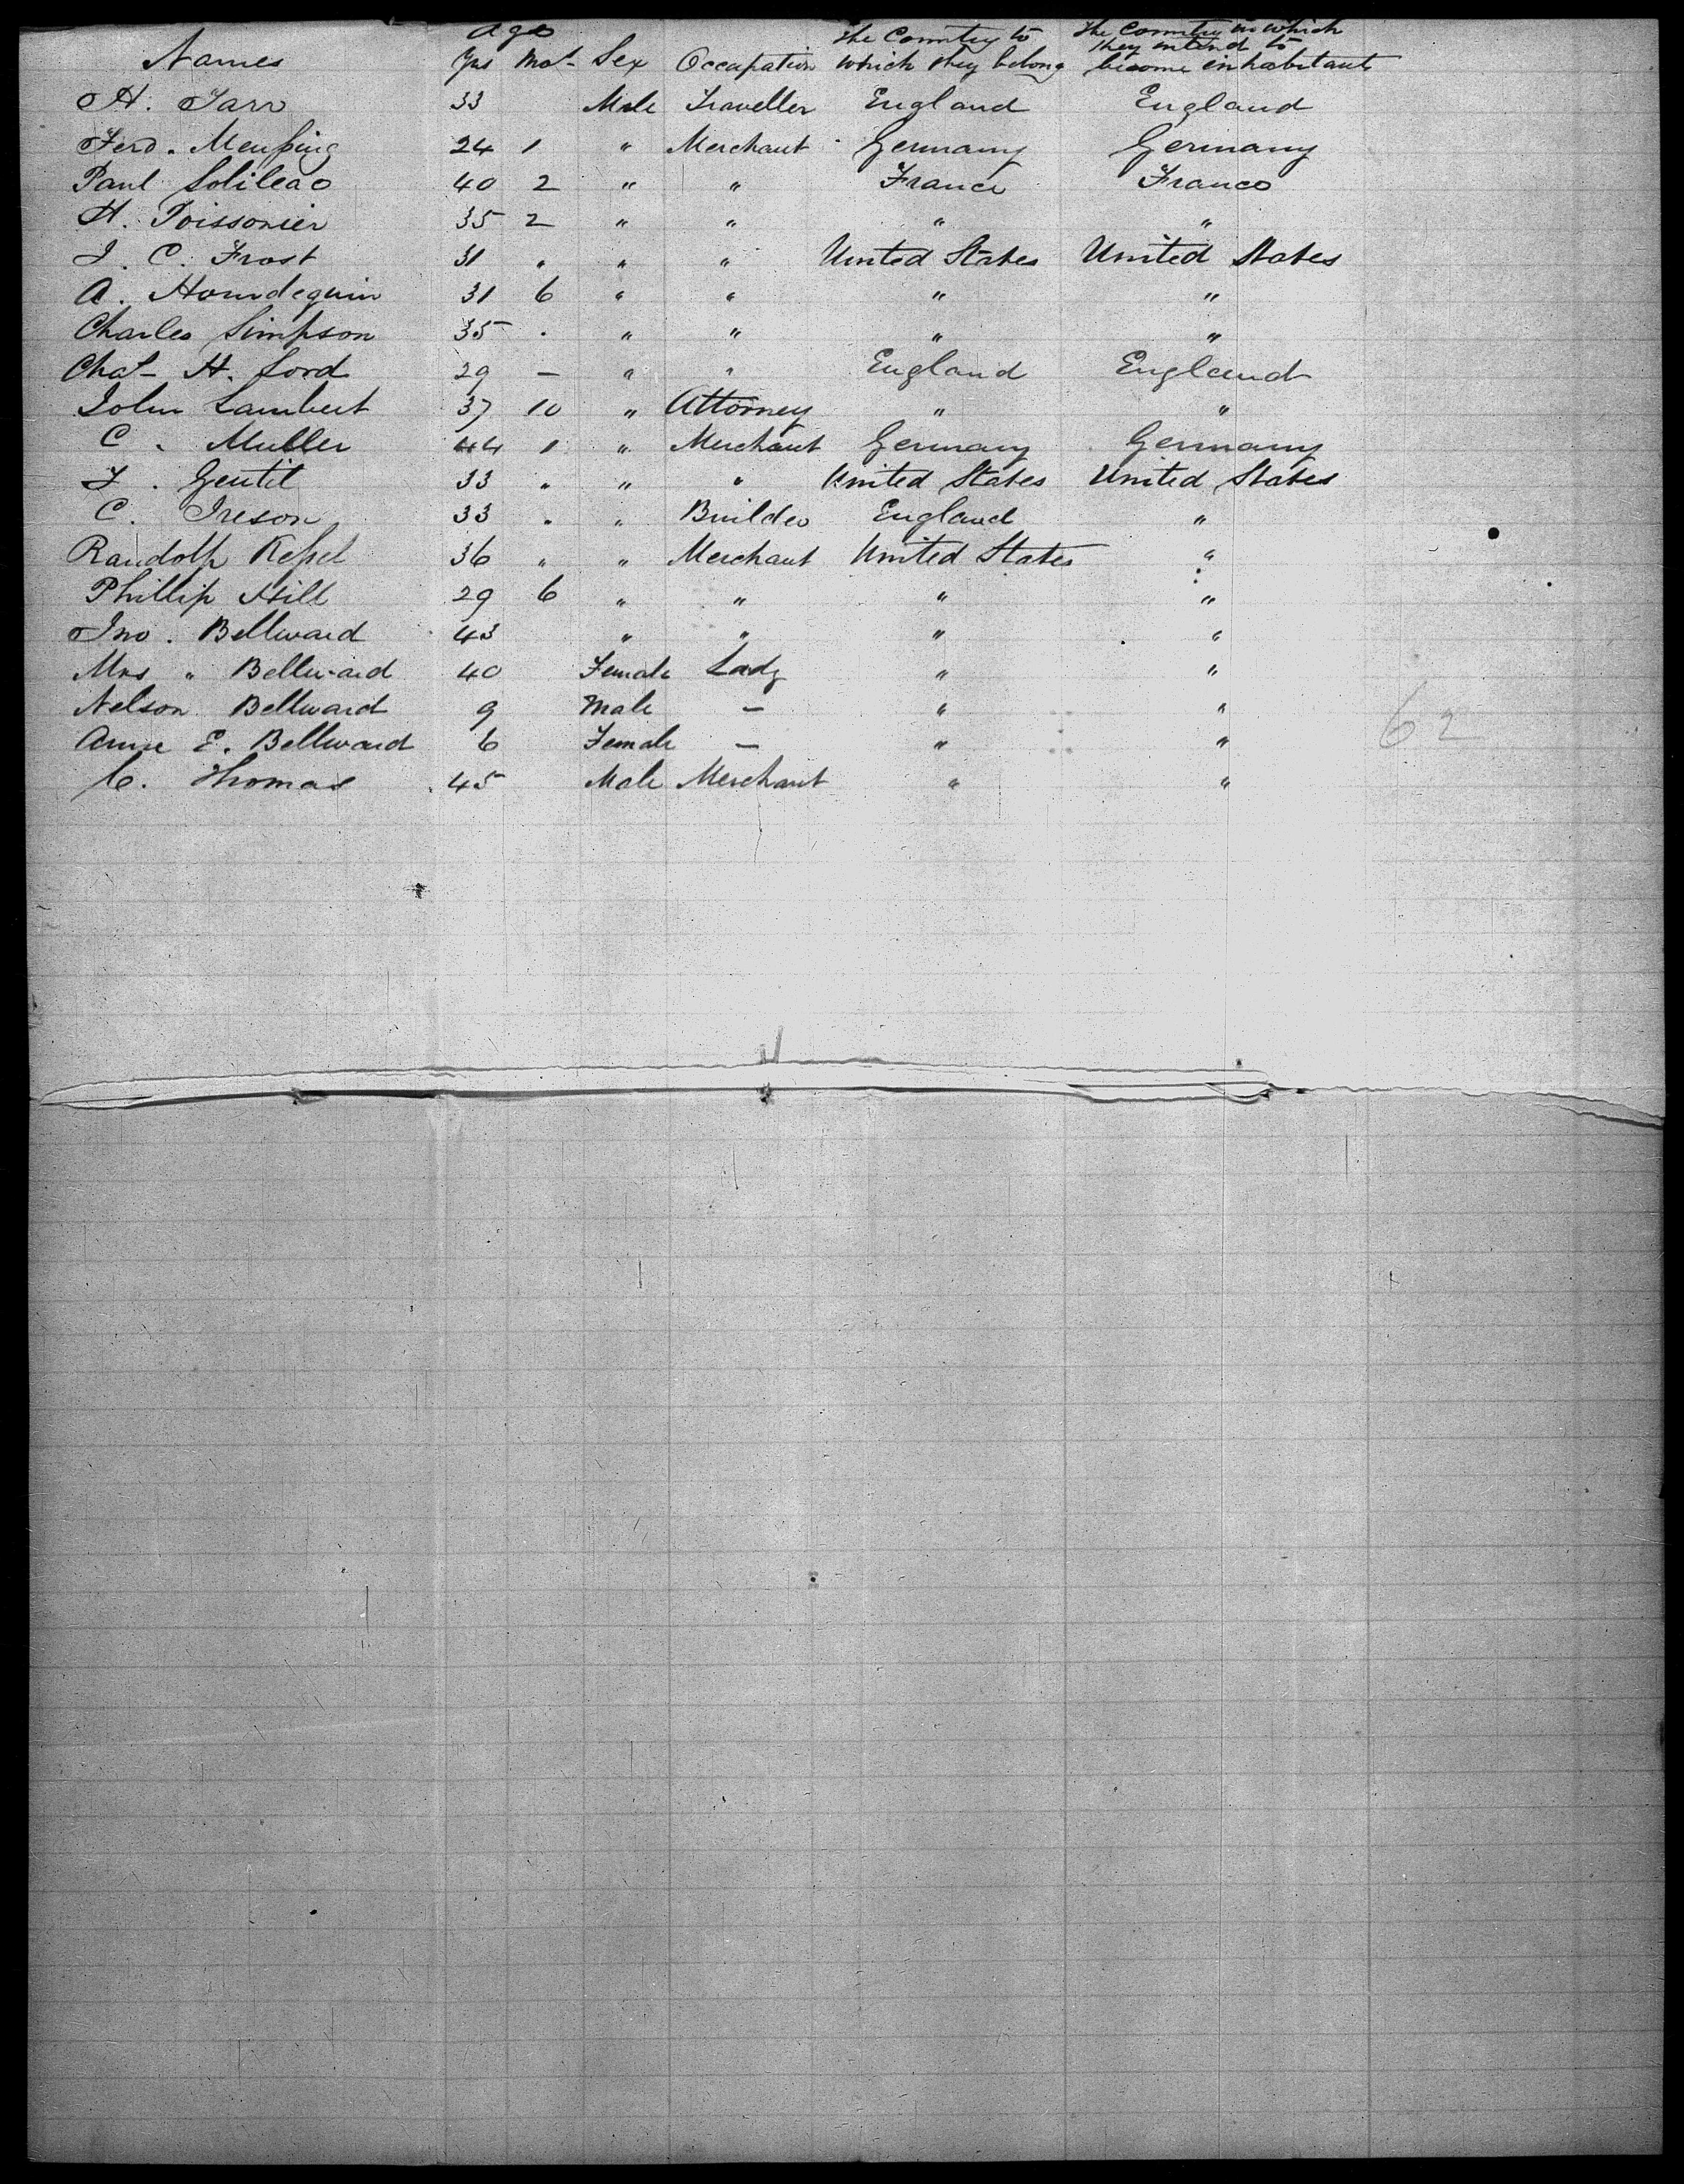 Age The Country to The Country in which
they intend to
Names Yrs Mos Sex Occupation which they belong become inhabitants
H. Tarr 33 Male Traveller England England
Ferd. Meussing 24 1 " Merchant Germany Germany
Paul 40 2 " " France France
H. Poissonier 35 2 " " " "
J. C. Frost 31 " " " United States United States
A. Hourdequin 31 6 " " " "
Charles Simpson 35 . " " " "
Chas H. Lord 29 — " " England England
John Lambert 37 10 " Attorney " "
C. Muller 44 1 " Merchant Germany Germany
Gentil 33 " " " United States United States
C. Ireson 33 " " Builder England "
Randolph 36 " " Merchant United States "
Phillip Hill 29 6 " " " "
Jno. Bellward 43 " " " "
Mrs " Bellward 40 Female Lady " "
Nelson Bellward 9 Male — " "
Annie E. Bellward 6 Female — " "
C. Thomas 45 Male Merchant " "
62